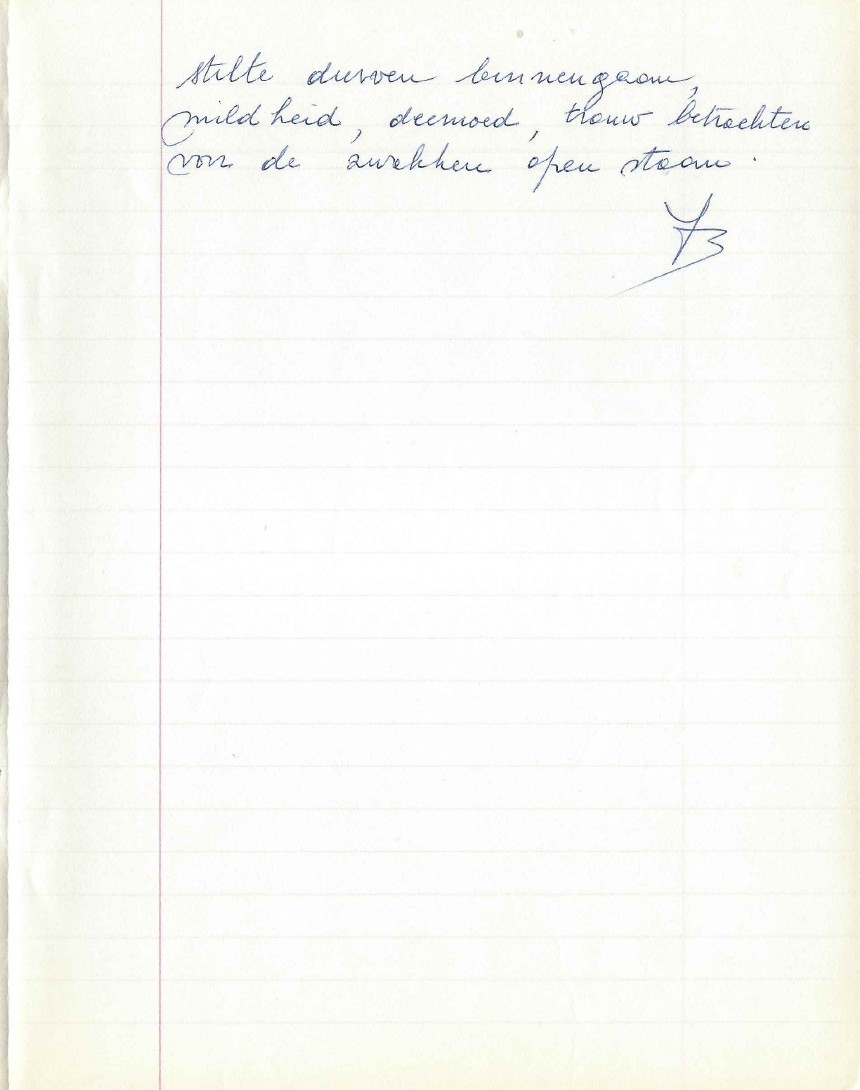 stilte durven binnengaan,
mildheid, deemoed, trouw betrachten
voor de zwakkere open staan.